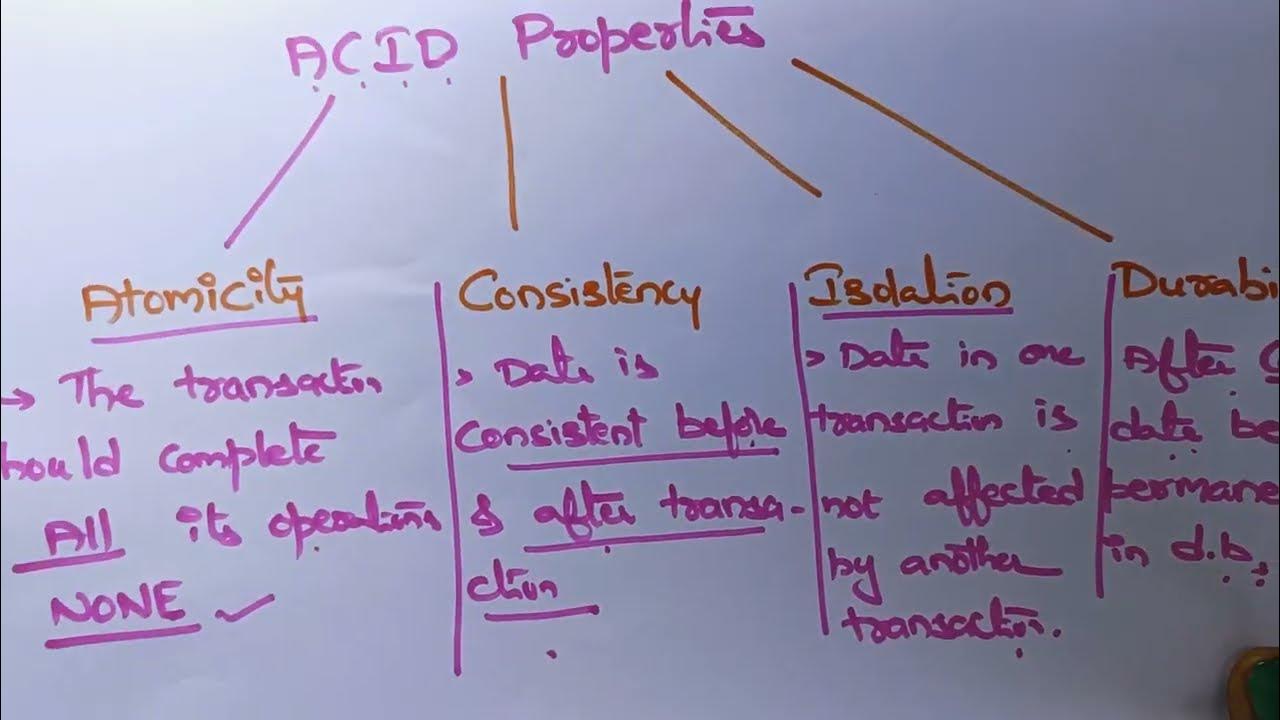 ACID Properties
Atomicity
→ The transaction
hould complete
All its operations
NONE ✓
Consistency
> Data is
consistent before
& after transa-
ction
Isolation
> Data in one
transaction is
not affected
by another
transaction.
Durabi
After C
data be
permane
in d.b.